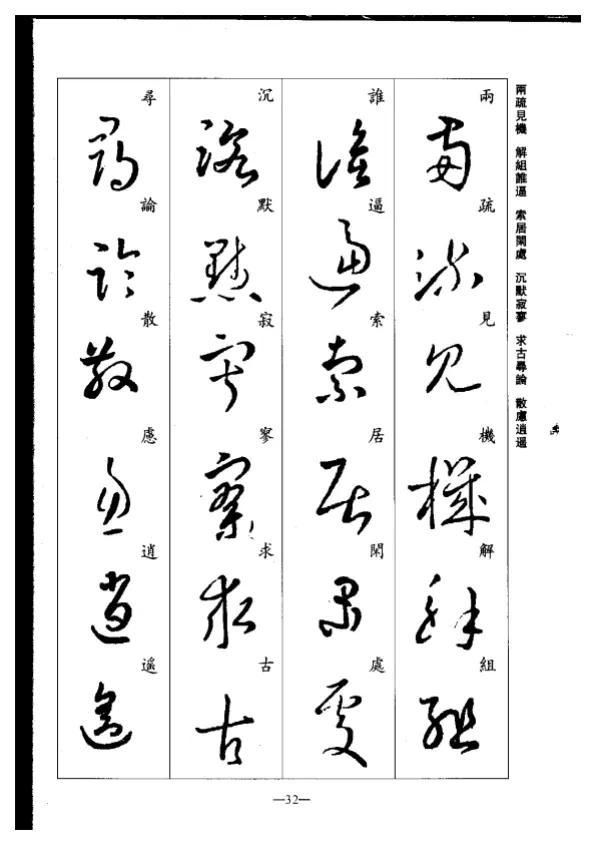 兩疏見機 解組誰逼 索居閑處 沉默寂寥 求古尋論 散慮逍遙
兩疏見機解組
誰逼索居閑處
沉默寂寥求古
尋論散慮逍遙
—32—